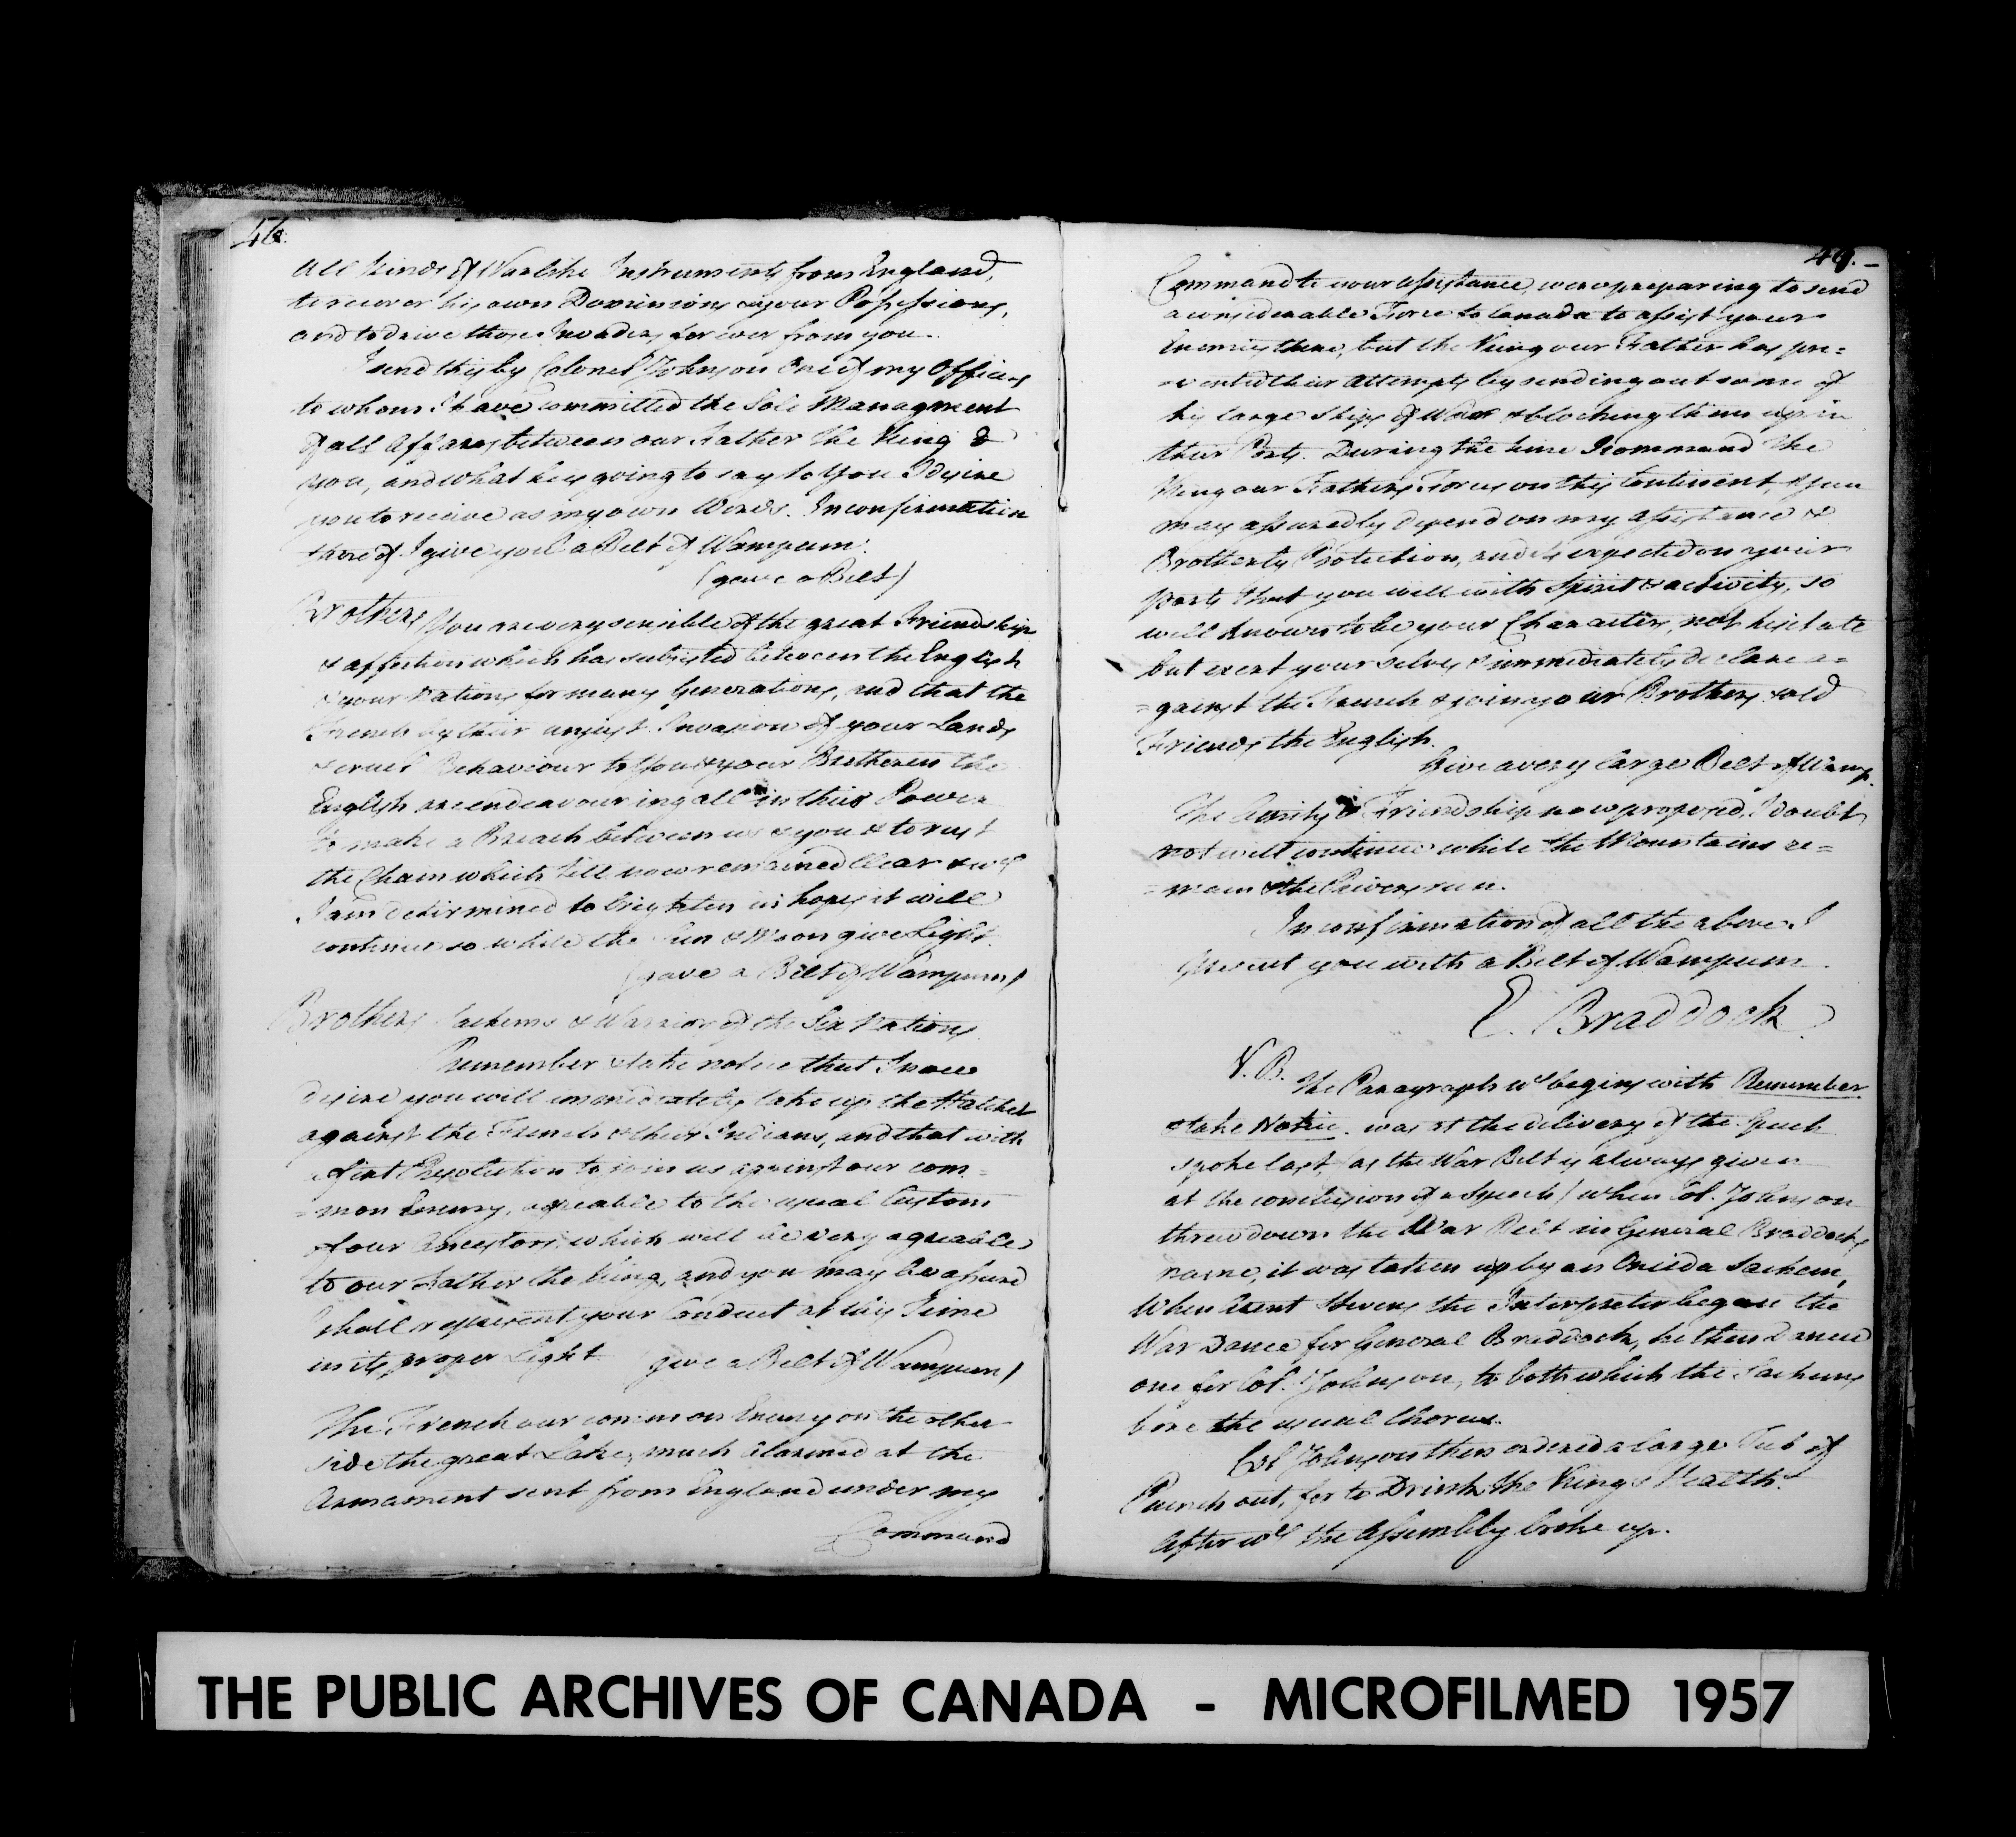 46.
all kinds of Warlike Instruments from England,
to recover his own Dominions & your Possessions,
and to drive those Invaders for ever from you.
I send this by Colonel Johnson One of my Officers
to whom I have committed the Sole Managment
of all Affares between our Father the King &
you, and what he is going to say to you I desire
you to receive as my own Words. In confirmation
thereof I give you a Belt of Wampum.
(gave a Belt)
Brothers You are very sensible of the great Friendship
& affection which has subsisted between the English
& your Nations for many Generations, and that the
French by their unjust Invasion of your Lands
& cruel Behaviour to you & your Bretheren the
English are endeavouring all in their Power
to make a Breach between us & you & to rust
the Chain which till now remained Clear & wch
I am determined to brighten in hopes it will
continue so while the Sun & Moon give Light.
(gave a Belt of Wampum)
Brothers Sachems & Warrior of the Six Nations
Remember & take notice that I now
desire you will immediately take up the Hatchet
against the French & their Indians, and that with
a first Resolution to join us against our com=
=mon Enemy, agreable to the usual Custom
of our Ancestors which will be very agreable
to our Father the King, and you may be assured
I shall represent your Conduct at this Time
in its proper Light (gave a Belt of Wampum)
The French our common Enemy on the other
side the great Lake, much alarmed at the
Armament sent from England under my
Command
49.
Command to your Assistance, were preparing to send
a considerable Force to Canada to assist your
Enemies there, but the King our Father has pre=
=vented their Attempts by sending out some of
his large Ships of War & blocking them up in
their Ports. During the time I command the
King our Fathers Forces on this Continent, you
may assuredly depend on my Assistance &
Brotherly Protection, and it is expected on your
parts that you will with Spirit & activity, so
well known to be your Character, not hesitate
but exert your selves & immediately declare a=
=gainst the French & join your Brothers & old
Friends the English.
Give a very large Belt of Wamp.
The Amity & Friendship now proposed, I doubt
not will continue while the Mountains re=
=main & the Rivers run.
In confirmation of all the above I
present you with a Belt of Wampum.
E. Braddock
N.B. The Paragraph wch begins with Remember
& take Notice was at the delivery of the Speech
spoke last (as the War Belt is always given
at the conclusion of a Speech) when Col. Johnson
threw down the War Belt in General Braddocks
name, it was taken up by an Oneida Sachem,
When Arent Stevens the Interpreter began the
War Dance for General Braddock, he then danced
one for Col. Johnson, to both which the Sachems
bore the usual Chorus.
Col Johnson then ordered a large Tub of
Punch out, for to Drink the Kings Health.
after wch the Assembly broke up.
THE PUBLIC ARCHIVES OF CANADA - MICROFILMED 1957